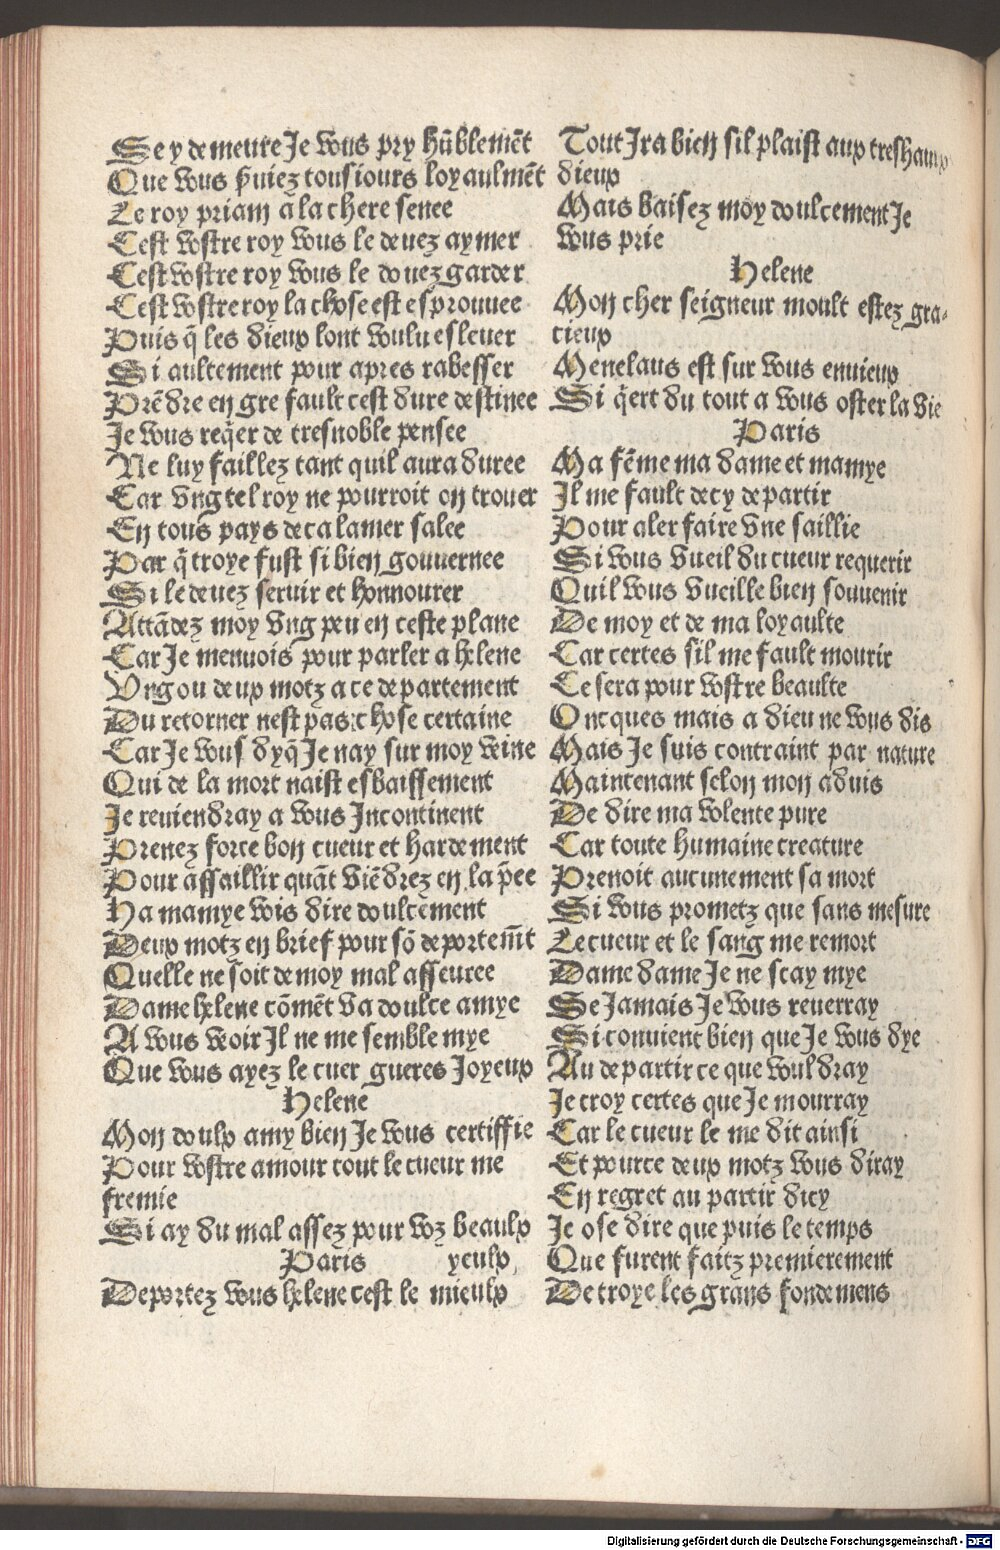 Se y demeure Je vous pry hūblemēt
Que vous s̄uiez tousiours loyaulmēt
Le roy priam a la chere senee
Cest vostre roy vous le deuez aymer
Cest vostre roy vous le douez garder
Cest vostre roy la chose est esprouuee
Puis q̄ les dieux lont voulu esleuer
Si aultement pour apres rabesser
Prēdre en gre fault cest dure destinee
Je vous req̄er de tresnoble pensee
Ne luy faillez tant quil aura duree
Car vng tel roy ne pourroit on trouer
En tous pays deca la mer salee
Par q̄ troye fust si bien gouuernee
Si le deuez seruir et honnourer
Attādez moy vng peu en ceste plane
Car Je menuois pour parler a helene
Vng ou deux motz a ce departement
Du retorner nest pas chose certaine
Car Je vous dy q̄ Je nay sur moy veine
Qui de la mort naist esbaissement
Je reuiendray a vous Incontinent
Prenez force bon cueur et hardement
Pour assaillir quāt viēdrez en la p̄ee
Ha mamye vois dire doulcement
Deux motz en brief pour sō deportem̄t
Quelle ne soit de moy mal asseuree
Dame helene cōmēt va doulce amye
A vous veoir Il ne me semble mye
Que vous ayez le cuer gueres Joyeux
Helene
Mon doulx amy bien Je vous certiffie
Pour vostre amour tout le cueur me
fremie
Si ay du mal assez pour voz beaulx
Paris yeulx
Deportez vous helene cest le mieulx
Tout Jra bien sil plaist aux treshaux
dieux
Mais baisez moy doulcement Je
vous prie
Helene
Mon cher seigneur moult estez gra-
cieux
Menelaus est sur vous enuieux
Si q̄ert du tout a vous oster la vie
Paris
Ma fēme ma dame et mamye
Il me fault decy departir
Pour aler faire vne saillie
Si vous vueil du cueur requerir
Quil vous vueille bien souuenir
De moy et de ma loyaulte
Car certes sil me fault mourir
Ce sera pour vostre beaulte
Oncques mais a dieu ne vous dis
Mais Je suis contraint par nature
Maintenant selon mon aduis
De dire ma volente pure
Car toute humaine creature
Prenoit aucunement sa mort
Si vous prometz que sans mesure
Le cueur et le sang me remort
Dame dame Je ne scay mye
Se Jamais Je vous reuerray
Si conuient bien que Je vous dye
Au departir ce que vouldray
Je croy certes que Je mourray
Car le cueur le me dit ainsi
Et pource deux motz vous diray
En regret au partir dicy
Je ose dire que puis le temps
Que furent faitz premierement
De troye les grans fondemens
Digitalisierung gefördert durch die Deutsche Forschungsgemeinschaft - DFG